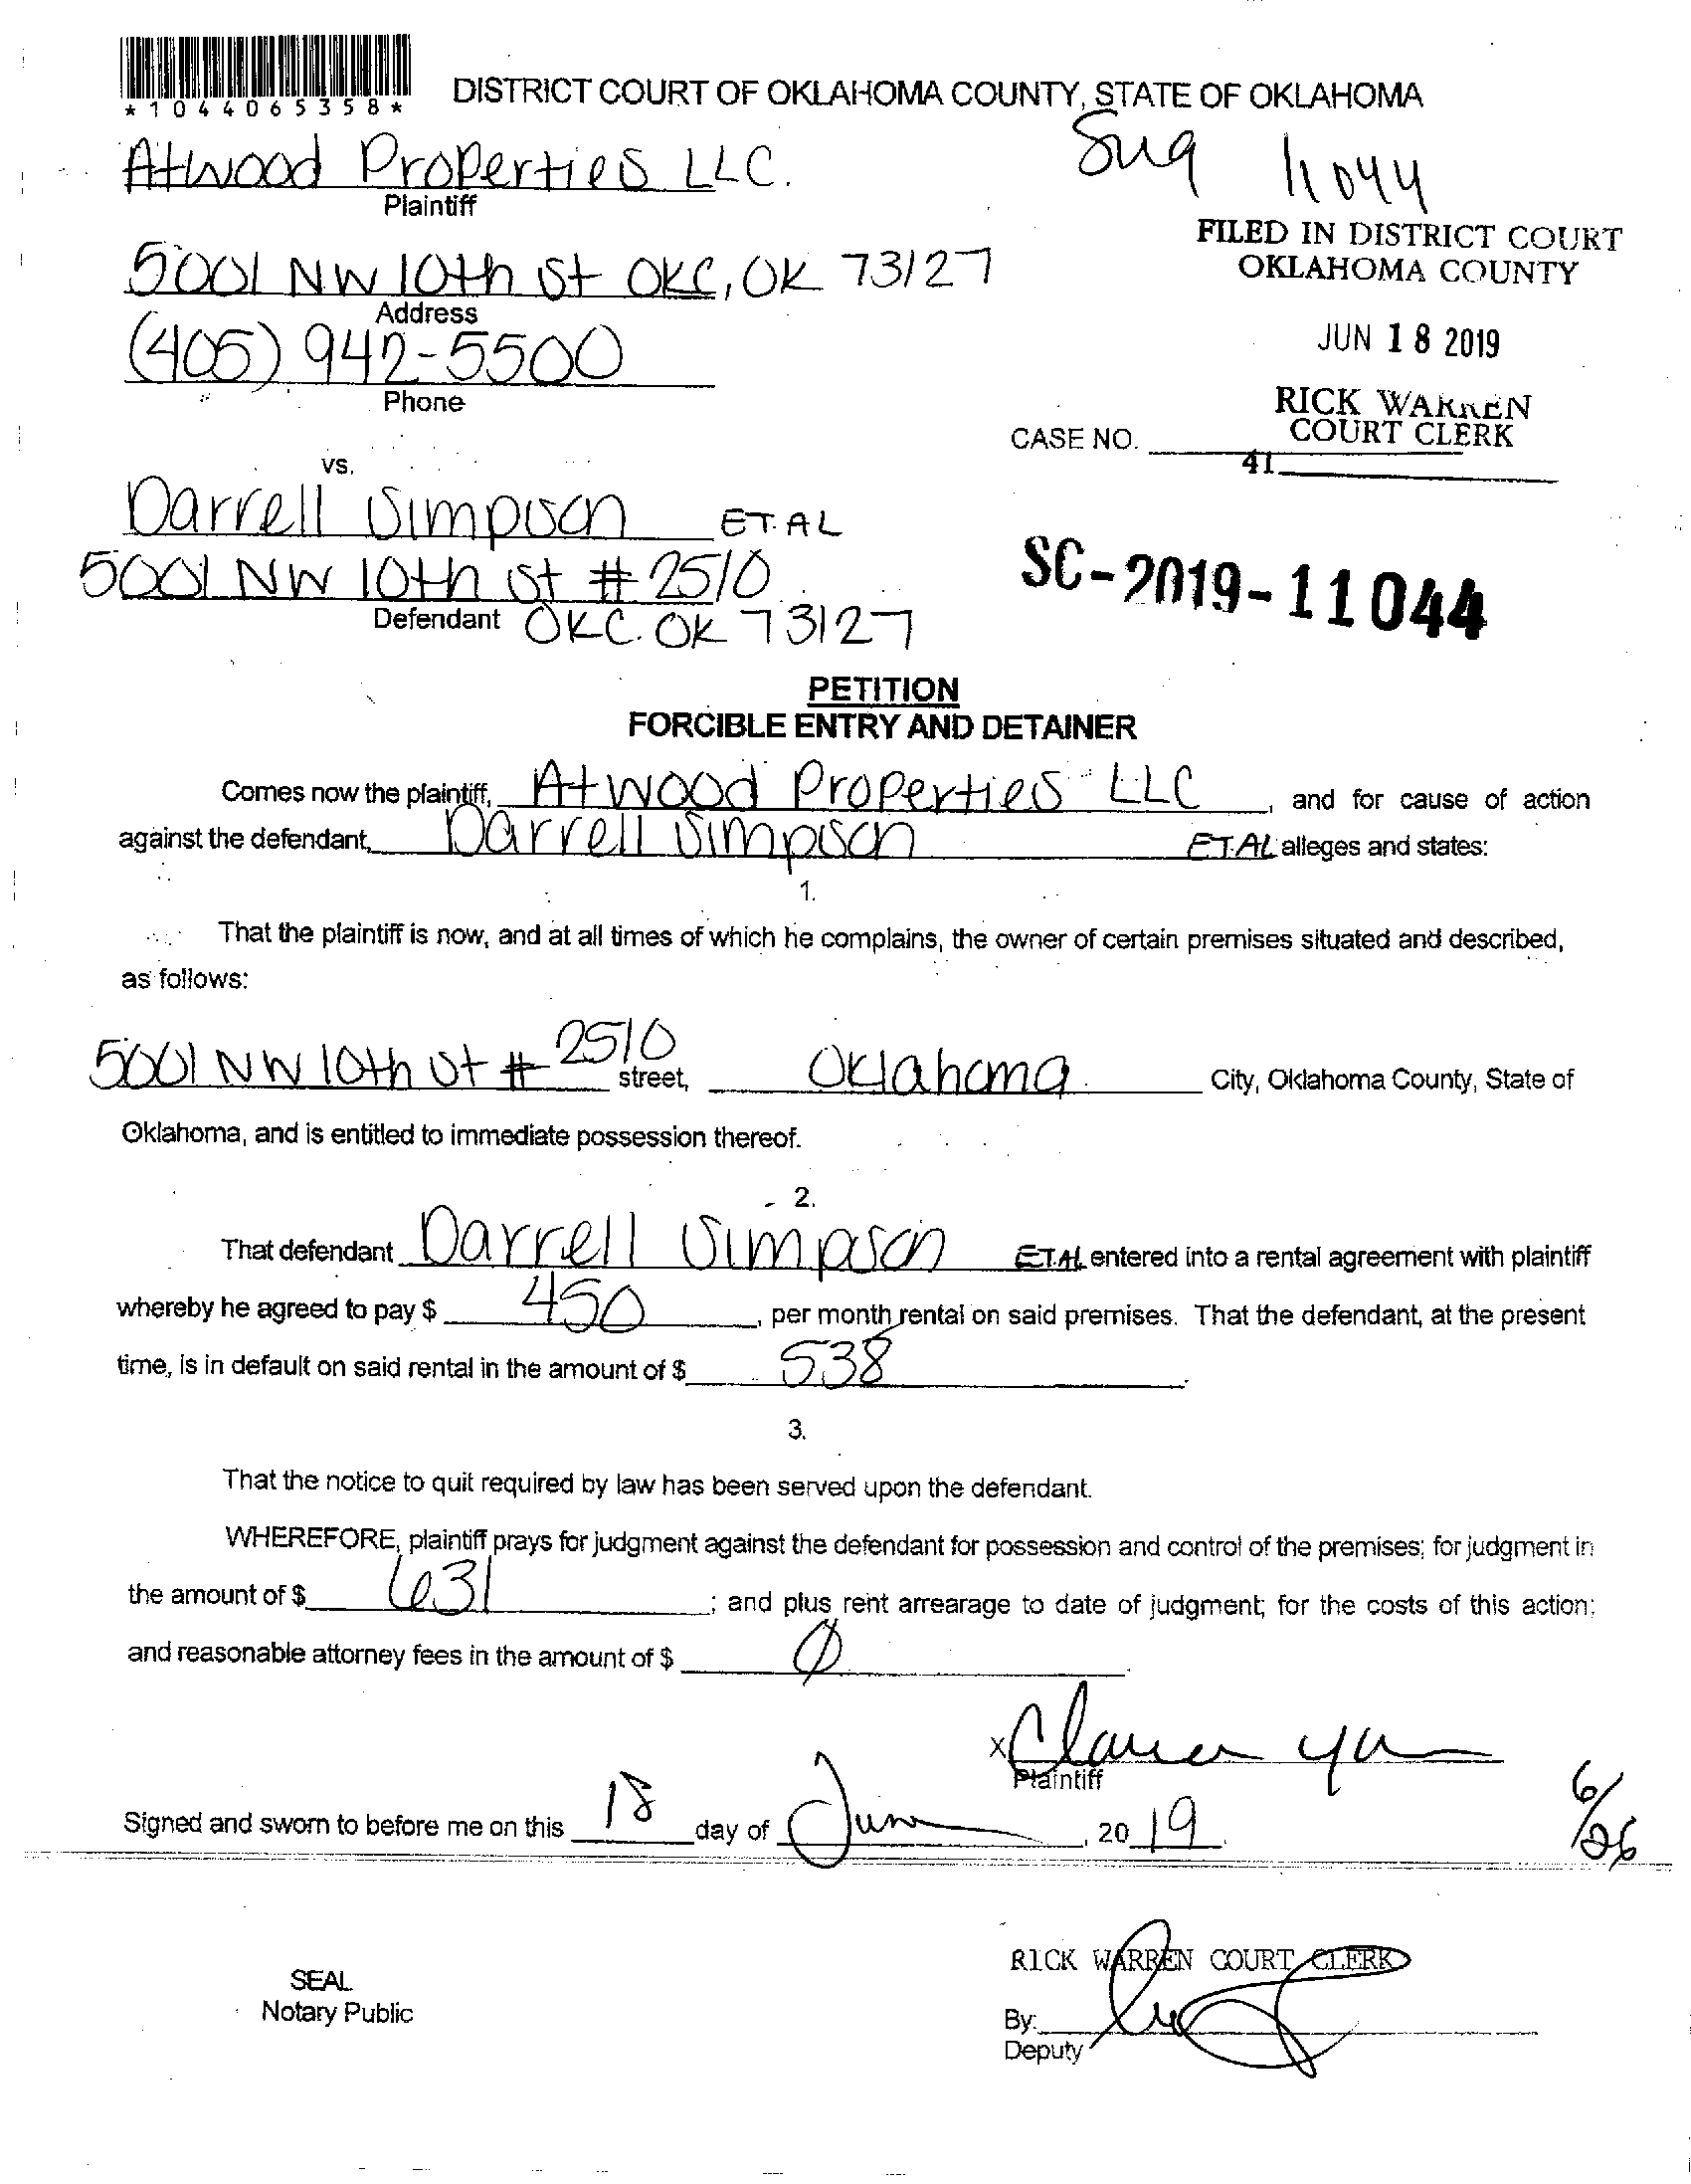 *1044065358*
DISTRICT COURT OF OKLAHOMA COUNTY, STATE OF OKLAHOMA
Atwood Properties LLC.
11044
Plaintiff
FILED IN DISTRICT COURT
OKLAHOMA COUNTY
5001 NW 10th St OKC, OK 73127
Address
JUN 18 2019
(405) 942-5500
Phone
RICK WARREN
COURT CLERK
CASE NO.
41
vs.
Darrell Simpson ET. AL
5001 NW 10th St # 2510
Defendant OKC. OK 73127
SC-2019-11044
PETITION
FORCIBLE ENTRY AND DETAINER
Comes now the plaintiff, Atwood Properties LLC, and for cause of action
against the defendant, Darrell Simpson ET.AL alleges and states:
1.
That the plaintiff is now, and at all times of which he complains, the owner of certain premises situated and described,
as follows:
5001 NW 10th St # 2510 street, Oklahoma City, Oklahoma County, State of
Oklahoma, and is entitled to immediate possession thereof.
2.
That defendant Darrell Simpson ET.AL entered into a rental agreement with plaintiff
whereby he agreed to pay $ 450, per month rental on said premises. That the defendant, at the present
time, is in default on said rental in the amount of $ 538.
3.
That the notice to quit required by law has been served upon the defendant.
WHEREFORE, plaintiff prays for judgment against the defendant for possession and control of the premises; for judgment in
the amount of $ 631; and plus rent arrearage to date of judgment; for the costs of this action;
and reasonable attorney fees in the amount of $ Ø.
X
Plaintiff
Signed and sworn to before me on this 18 day of June, 2019.
6/26
RICK WARREN COURT CLERK
SEAL
Notary Public
By:
Deputy